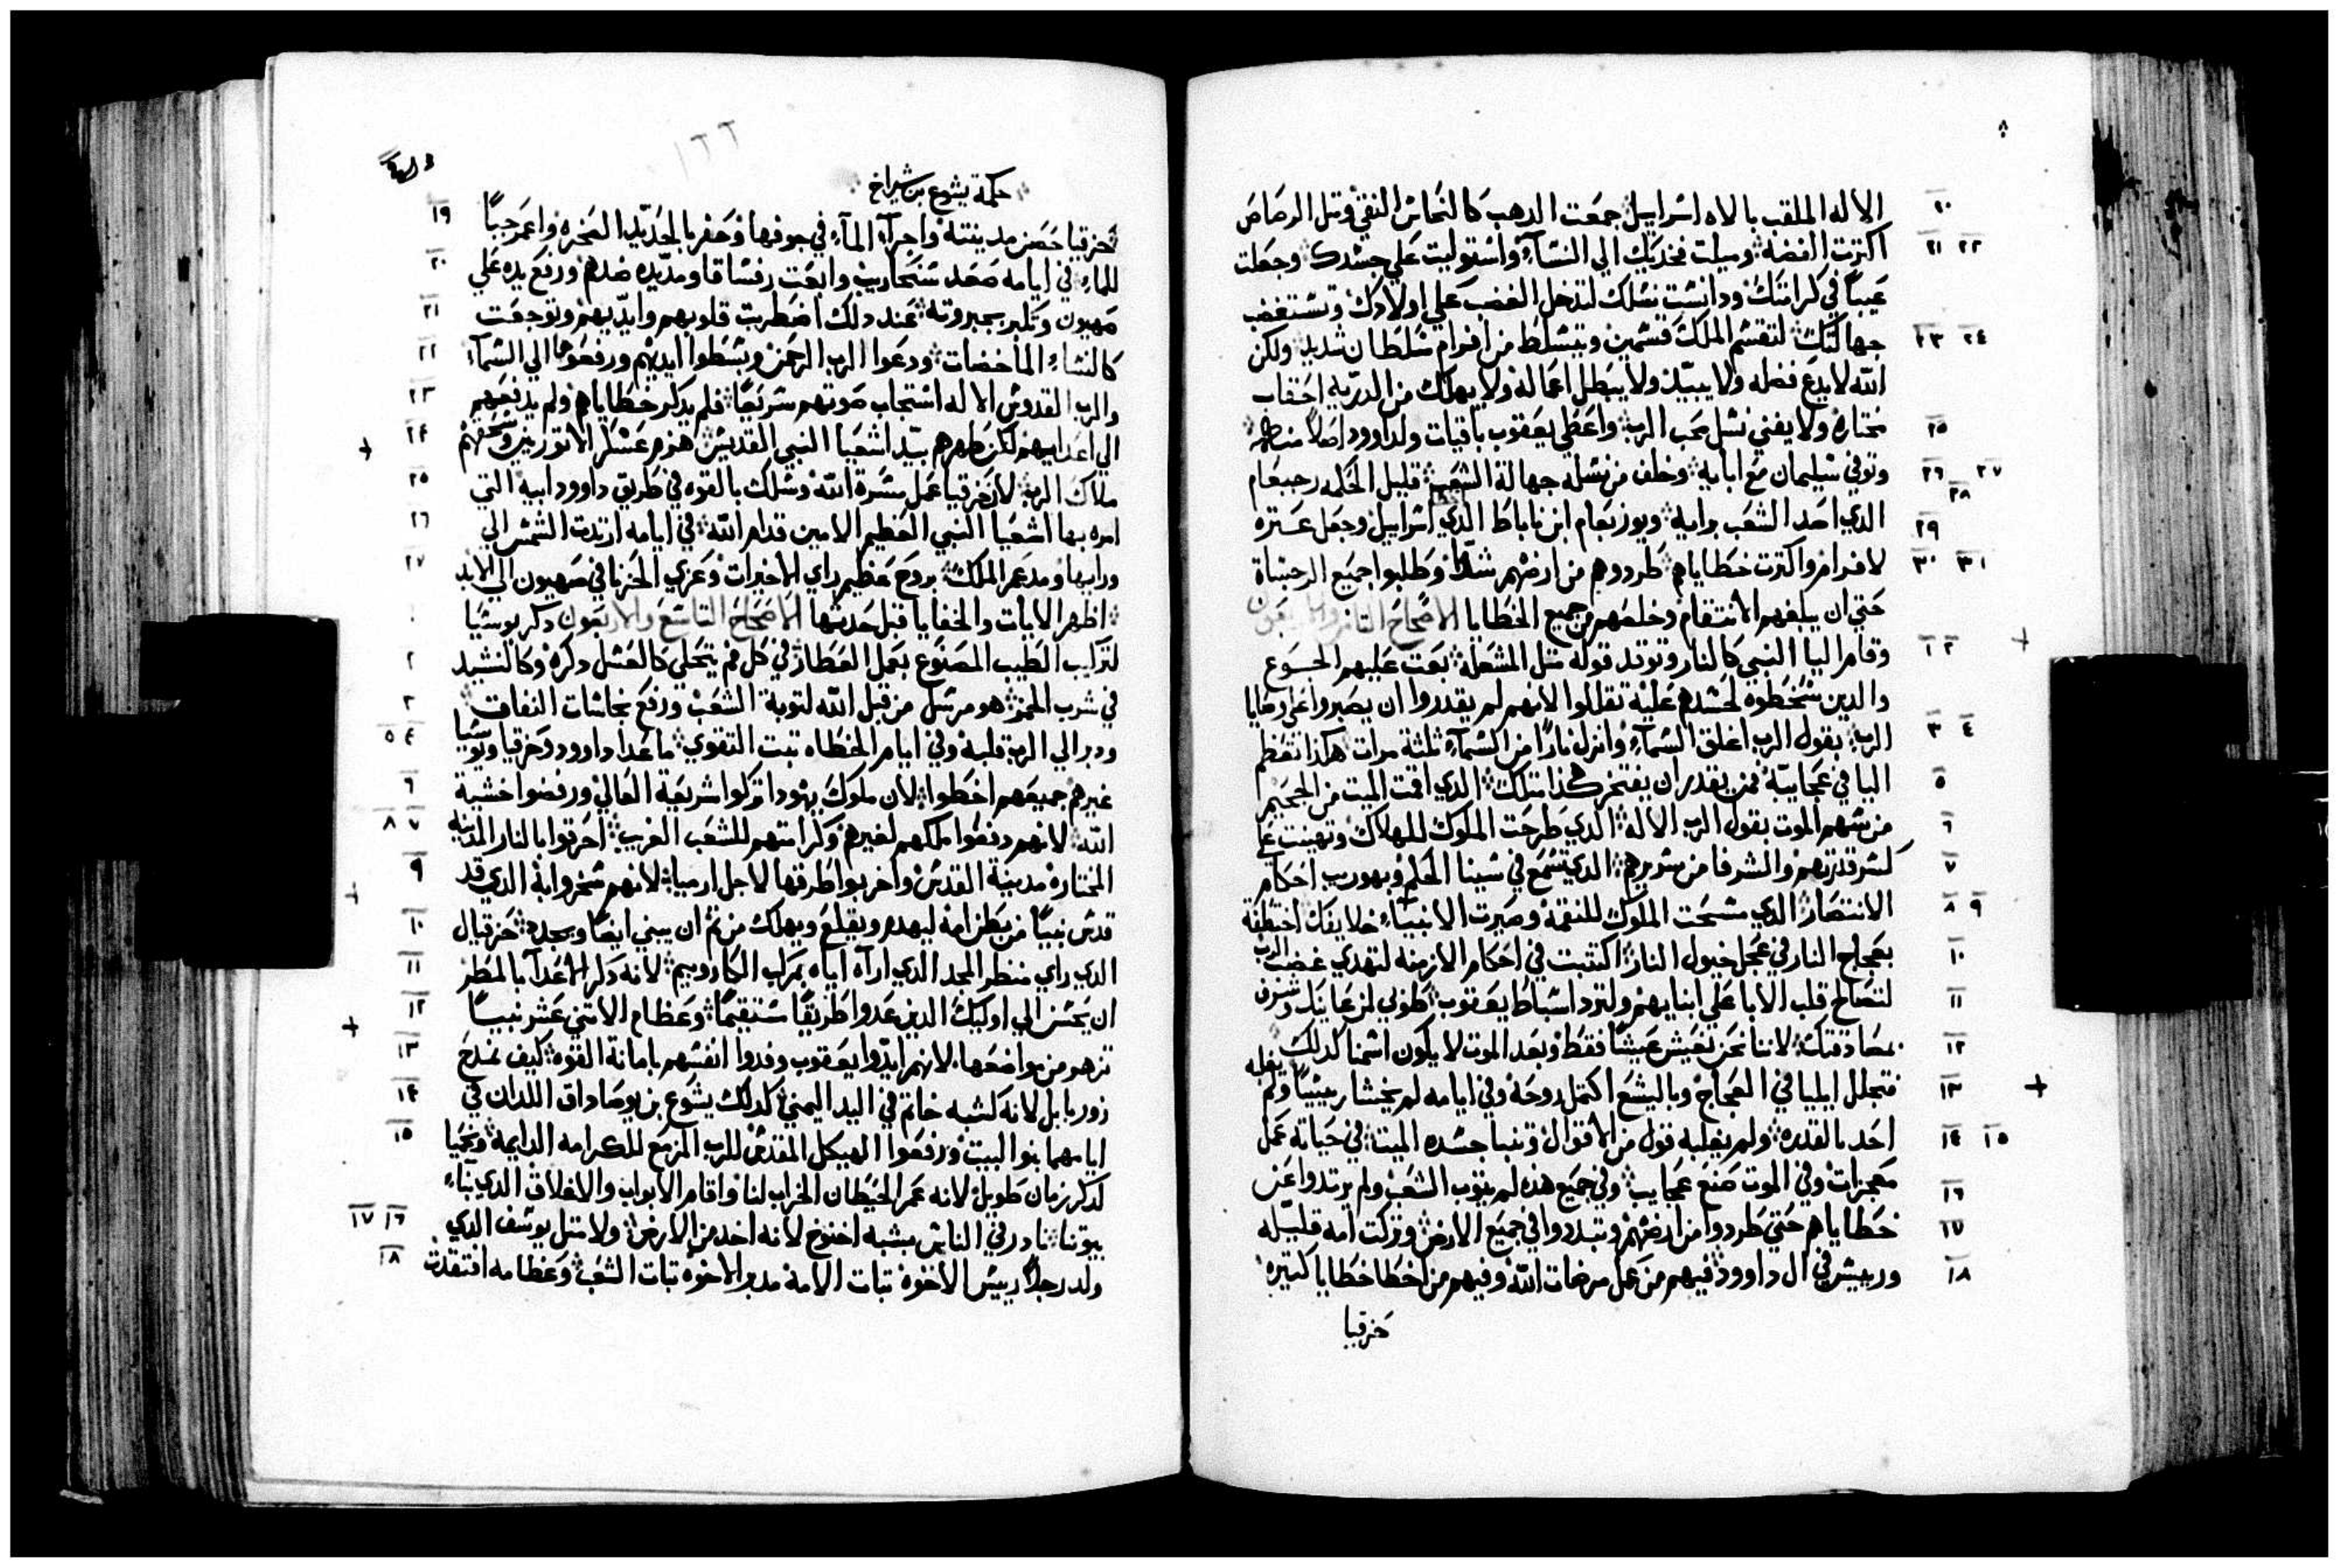 ٨
٢٠ الاله الملقب بالاه اسراييل جمعت الدهب كالنحاس النقي ومثل الرصاص
٢١ ٢٢ اكترت الفضة وميلت فخديك الي النسآء واستوليت علي جسدك وجعلت
عيباً في كرامتك ودانست نسلك لتدخل الغضب علي اولادك وتستغضب
٢٣ ٢٤ جهالتك لتقسم الملك قسمين ويتسلط من افرام سلطان شديد ولكن
الله لا يدع فضله ولا يبيّد ولا يبطل اعماله ولا يهلك من الدريه احقاب
٢٥ مختاره ولا يفني نسل محب الرب واعطي يعقوب باقيات ولداوود اصلاً منه
٢٦ ٢٧ وتوفي سليمان مع ابايه وخلف من نسله جهالة الشعب قليل الحكمه رحبعام
٢٨
٢٩ الدي احد الشعب برايه ويوربعام ابن ناباط الدي اسراييل وجعل عتره
٣٠ ٣١ لافرام واكترت خطاياهم طردوهم من ارضهم شدًا وطلبوا جميع الرجساة
حتي ان يبلغهم الانتقام وخلصهم من جميع الخطايا الاصحاح التامن والاربعون
١ ٢ وقام اليا النبي كالنار وتوقد قوله متل المشعلة بعت عليهم الجوع
والدين سخطوه لحسدهم عليه تقللوا لانهم لم يقدروا ان يصبروا علي وصايا
٣ ٤ الرب بقول الرب اغلق السمآء وانزل نارًا من السمآء تلتة مرات هكذا تعظم
٥ اليا في عجايبه فمن يقدر ان يفتخر هكذا متلك الدي اقمت الميت من الجحيم
٦ من سهم الموت بقول الرب الاله الدي طرحت الملوك للهلاك وتهينت علي
٧ كسر قدرتهم والشرفا من سريرهم الدي تسمع في سينا الحكم وبهوريب احكام
٨ ٩ الانتصار الدي مسحت الملوك للنقمة وصيرت الانبيآء خلايفك اختطفة
١٠ بعجاج النار في عجل خيول النار اكتتبت في احكام الازمنه لتهدي غضب الرب
١١ لتصالح قلب الابا علي ابنايهم ولترد اسباط يعقوب طوبي لمن عاينك وشرف
١٢ بمصادقتك لاننا نحن نعيش عيشًا فقط وبعد الموت لا يكون اسمنا كدلك
١٣ فتجلل ايليا في العجاج وباليشع اكتمل روحه وفي ايامه لم يخشا رييسًا ولم يغلبه
١٤ ١٥ احد بالقدره ولم يغلبه قول من الاقوال وتنبا جسده الميت في حياته عمل
معجزات وفي الموت صنع عجايب وفي جميع هده لم يتوب الشعب ولم يرتدوا عن
١٦ خطاياهم حتي طردوا من ارضهم وتبددوا في جميع الارض وتركت امه قليله
١٨ ورييس في ال داوود فيهم من عمل مرضات الله وفيهم من اخطا خطايا كتيره
حزقيا
١٢٢
حكمة يشوع بن شيراخ
١٩ حزقيا حصن مدينته واجرآ المآء في جوفها وحفر بالحديد الصخره واعمر جباً
٢٠ للمآء في ايامه صعد سنحاريب وابعت رفساقا ومد يده ضدهم ورفع يده علي
٢١ صهيون وتكبر بجبروته عند دلك اضطربت قلوبهم وايديهم وتوجعت
٢٢ كالنسآء الماخضات ودعوا الرب الرحمن وبسطوا ايديهم ورفعوها الي السمآء
٢٣ والرب القدوس الاله استجاب صوتهم سريعًا فلم يدكر خطاياهم ولم يدفعهم
٢٤ الي اعدايهم لكن طهرهم بيد اشعيا النبي القديس هزم عسكر الاتوريين وسحقهم
٢٥ ملاك الرب لان حزقيا عمل مسرة الله وسلك بالقوه في طريق داوود ابيه التي
٢٦ امره بها اشعيا النبي العظيم الامين قدام الله في ايامه ارتدت الشمس الي
٢٧ ورايها ومد عمر الملك بروح عظيم راي الاخيرات وعزي الحزنا في صهيون الي الابد
اظهر الايات والخفايا قبل حدتها الاصحاح التاسع والاربعون دكر يوسيا
٢ لتركيب الطيب المصنوع بعمل العطار في كل فم يتحلي كالعسل دكره وكالنشيد
٣ في شرب الخمر هو مرسل من قبل الله لتوبة الشعب ورفع نجاسات النفاق
٤ ٥ ودبر الي الرب قلبه وفي ايام الخطاه تبت التقوي ما عدا داوود وحزقيا ويوسيا
٦ غيرهم جميعهم اخطوا لان ملوك يهودا تركوا شريعة العالي ورفضوا خشية
٧ ٨ الله لانهم دفعوا ملكهم لغيرهم وكرامتهم للشعب الغريب احرقوا بالنار المدينه
٩ المختاره مدينة القدس واخربوا طرقها لاجل ارميا لانهم سخروا به الدي قد
١٠ قدس نبيًا من بطن امه ليهدم ويقلع ويهلك من تم ان يبني ايضًا ويجدد حزقيال
١١ الدي راي منظر المجد الدي ارآه اياه بمركب الكاروبيم لانه دكر الاعدآ بالمطر
١٢ ان يحسن الي اوليك الدين عدوا طريقًا مستقيمًا وعظام الاتني عشر نبيًا
١٣ تزهو من مواضعها لانهم ايدوا يعقوب وفدوا انفسهم بامانة القوه كيف نمدح
١٤ زوربابل لانه كشبه خاتم في اليد اليمني كدلك يشوع بن يوصاداق اللدان في
١٥ ايامهما بنوا البيت ورفعوا الهيكل المقدس للرب المزمع للكرامه الدايمة ونحيا
لدكر زمان طويل لانه عمر الحيطان الخراب لنا واقام الابواب والاغلاق الدي بنآء
١٦ ١٧ بيوتنا نادر في الناس بشبه اخنوخ لانه اخد من الارض ولا متل يوسف الدي
١٨ ولد رجلاً رييس الاخوه تبات الامة مدبر الاخوه تبات الشعب وعظامه افتقدت